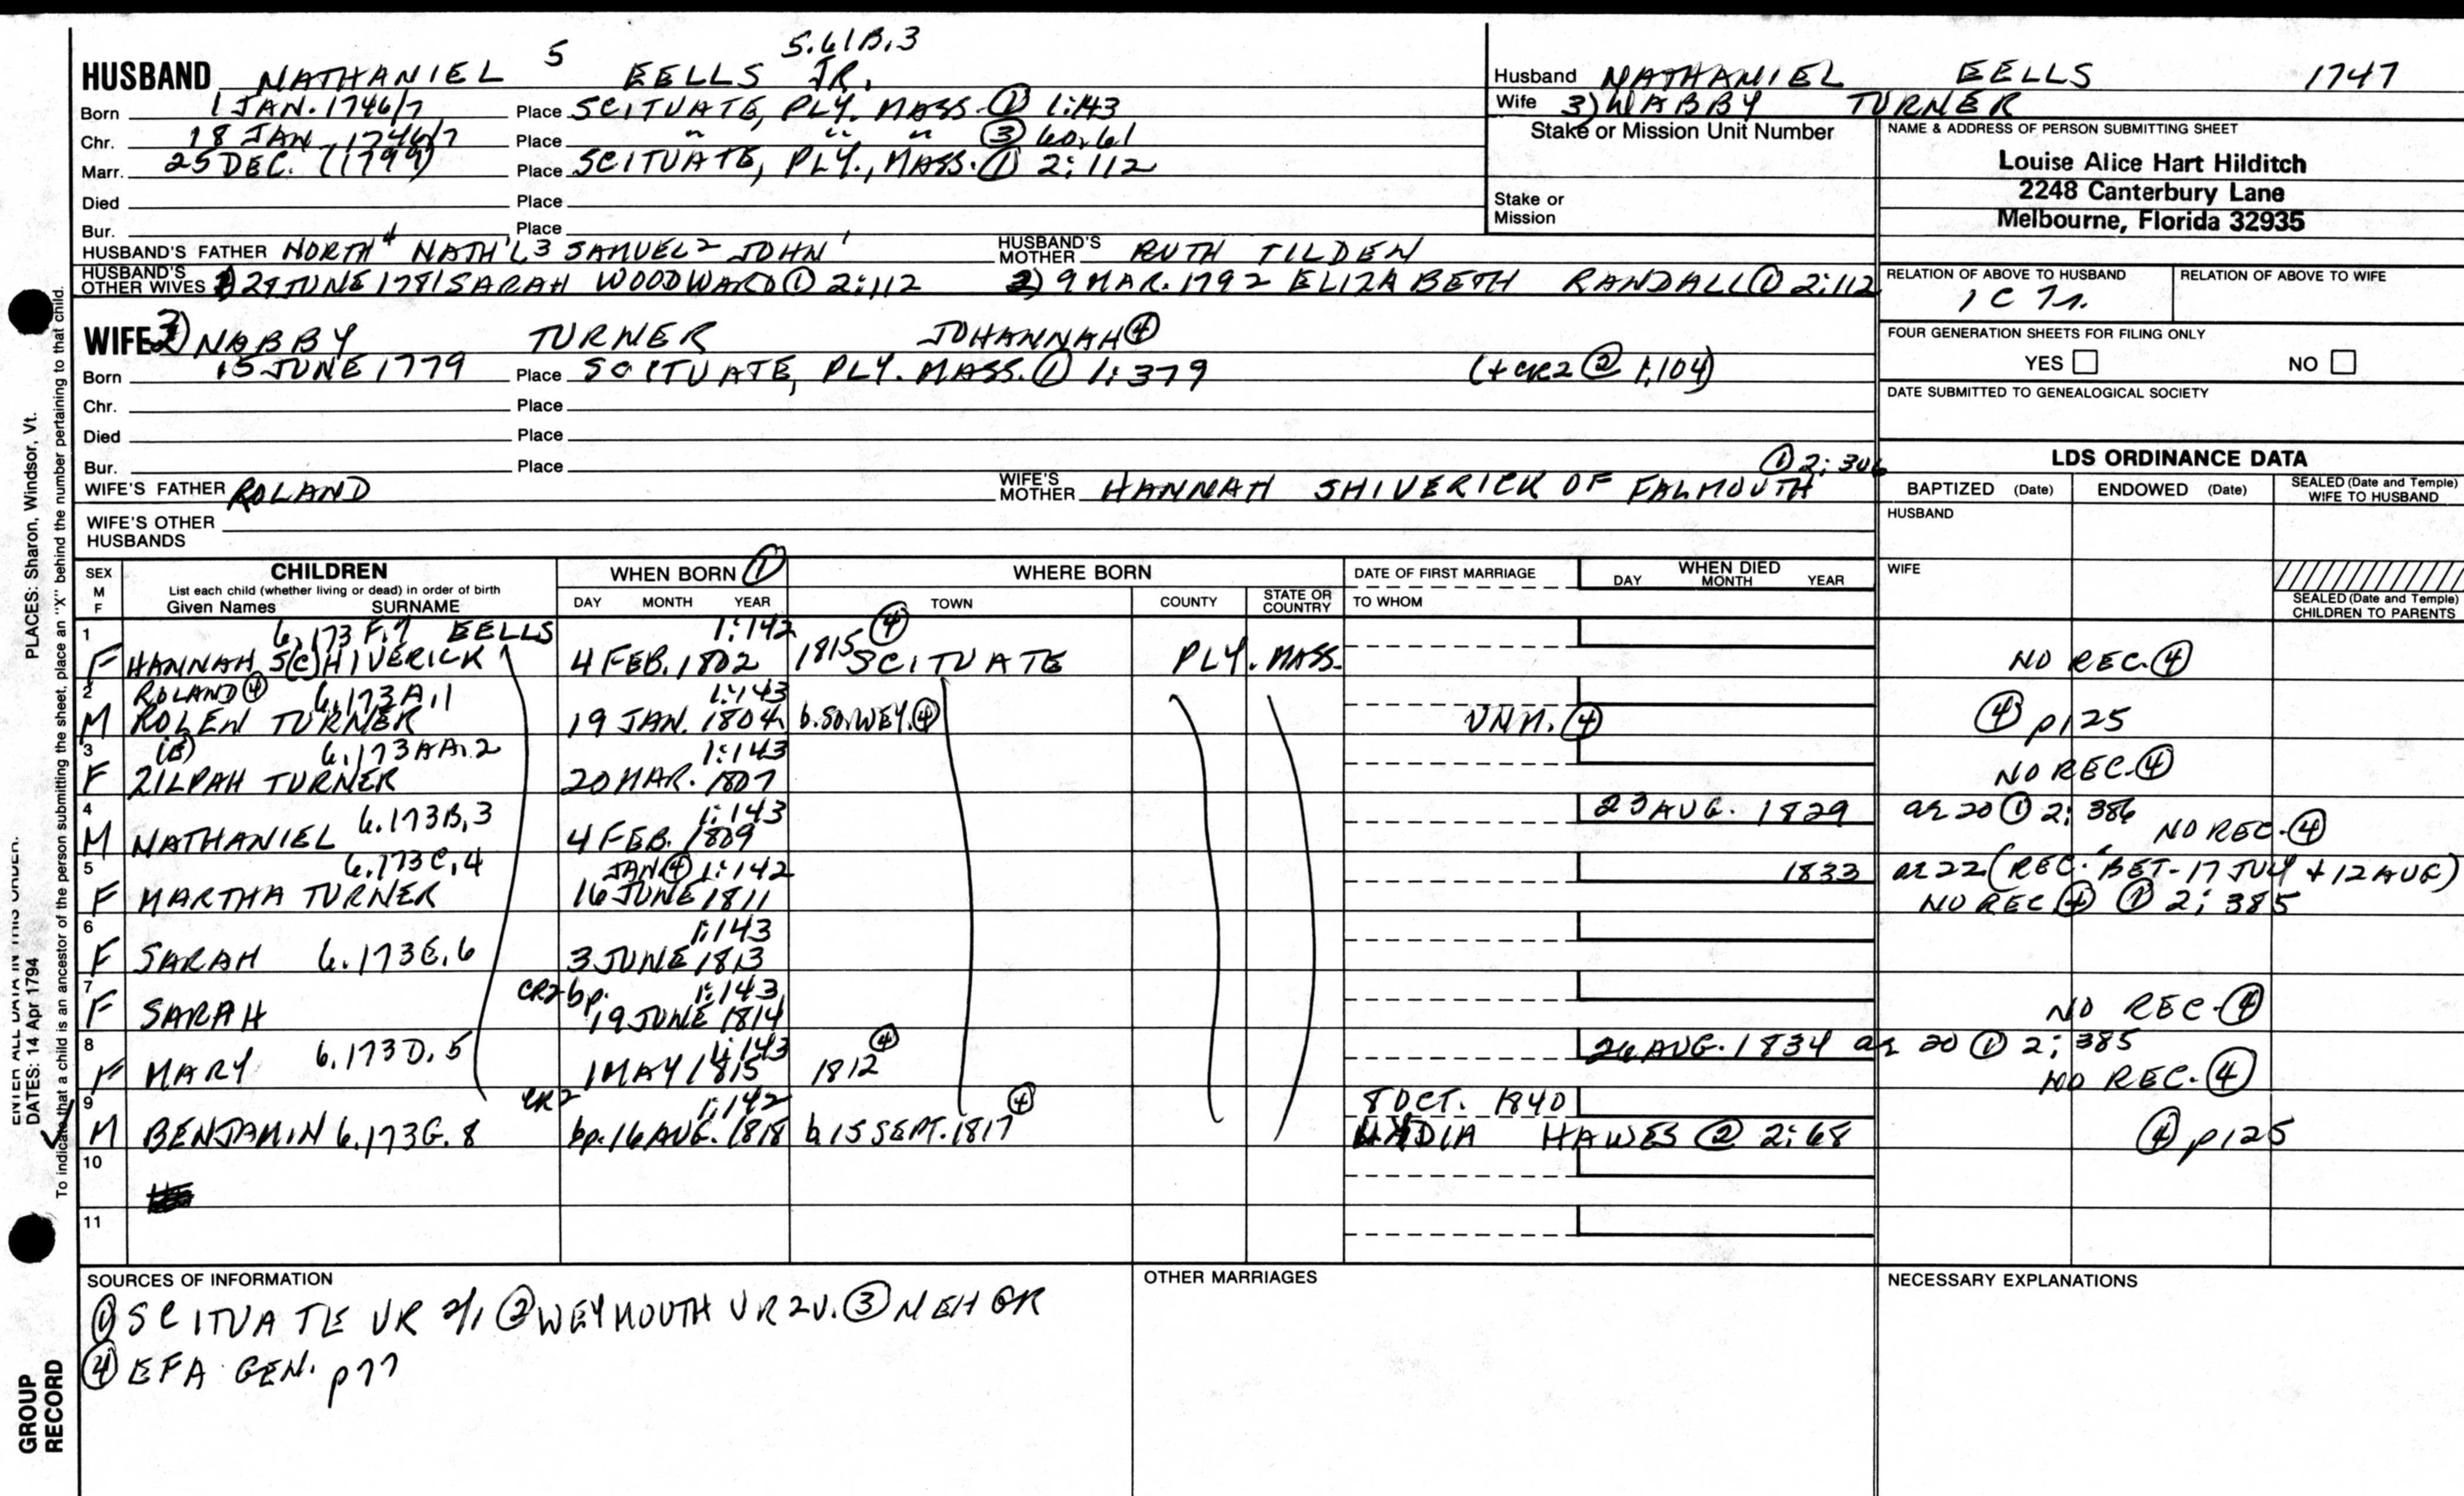 HUSBAND NATHANIEL 5 EELLS JR. 5.61B.3
Born 1 JAN. 1746/7 Place SCITUATE, PLY. MASS. ① 1:143
Chr. 18 JAN. 1746/7 Place " " " ③ 60.61
Marr. 25 DEC. (1799) Place SCITUATE, PLY., MASS. ① 2:112
Died Place
Bur. Place
HUSBAND'S FATHER NORTH 4 NATH'L 3 SAMUEL 2 JOHN 1 HUSBAND'S MOTHER RUTH TILDEN
HUSBAND'S OTHER WIVES 1) 28 JUNE 1781 SARAH WOODWARD ① 2:112 2) 9 MAR. 1792 ELIZABETH RANDALL ① 2:112
WIFE 3) NABBY TURNER JOHANNAH ④
Born 15 JUNE 1779 Place SCITUATE, PLY. MASS. ① 1:379 (+ CR2 @ 1:104)
Chr. Place
Died Place
Bur. Place
① 2:306
WIFE'S FATHER ROLAND WIFE'S MOTHER HANNAH SHIVERICK OF FALMOUTH
WIFE'S OTHER HUSBANDS
Husband NATHANIEL EELLS 1747
Wife 3) NABBY TURNER
Stake or Mission Unit Number
Stake or Mission
NAME & ADDRESS OF PERSON SUBMITTING SHEET
Louise Alice Hart Hilditch
2248 Canterbury Lane
Melbourne, Florida 32935
RELATION OF ABOVE TO HUSBAND RELATION OF ABOVE TO WIFE
1 C 7r.
FOUR GENERATION SHEETS FOR FILING ONLY
YES NO
DATE SUBMITTED TO GENEALOGICAL SOCIETY
LDS ORDINANCE DATA
BAPTIZED (Date) ENDOWED (Date) SEALED (Date and Temple) WIFE TO HUSBAND
HUSBAND
WIFE
SEALED (Date and Temple) CHILDREN TO PARENTS
SEX M F
CHILDREN
List each child (whether living or dead) in order of birth
Given Names SURNAME
WHEN BORN ①
DAY MONTH YEAR
WHERE BORN
TOWN COUNTY STATE OR COUNTRY
DATE OF FIRST MARRIAGE
TO WHOM
WHEN DIED
DAY MONTH YEAR
1 6.173F.7 EELLS 1:142 ④
F HANNAH S(C)HIVERICK 4 FEB. 1802 1815 SCITUATE PLY. MASS. NO REC. ④
2 ROLAND ④ 6.173A.1 1:143
M ROLEN TURNER 19 JAN. 1804 b. SO. WEY. ④ UNM. ④ ④ p125
3 6.173AA.2 1:143
F ZILPAH TURNER 20 MAR. 1807 NO REC. ④
4 6.173B.3 1:143 23 AUG. 1829 ae 20 ① 2:386
M NATHANIEL 4 FEB. 1809 NO REC. ④
5 6.173C.4 JAN ④ 1:142 1833 ae 22 (REC. BET. 17 JULY + 12 AUG)
F MARTHA TURNER 16 JUNE 1811 NO REC ④ ① 2:385
6 1:143
F SARAH 6.173E.6 3 JUNE 1813
7 CR2 bp. 1:143
F SARAH 19 JUNE 1814 NO REC. ④
8 6.173D.5 1:143 ④ 26 AUG. 1834 ae 20 ① 2:385
F MARY 1 MAY 1815 1812 NO REC. ④
9 CR2 1:142 ④ 8 OCT. 1840
M BENJAMIN 6.173G.8 bp. 16 AUG. 1818 b. 15 SEPT. 1817 LYDIA HAWES ② 2:68 ④ p125
10
11
SOURCES OF INFORMATION
① SCITUATE VR ② WEYMOUTH VR 2V. ③ NEHGR
④ EFA GEN. p77
OTHER MARRIAGES
NECESSARY EXPLANATIONS
ENTER ALL DATA IN THIS ORDER:
DATES: 14 Apr 1794 PLACES: Sharon, Windsor, Vt.
To indicate that a child is an ancestor of the person submitting the sheet, place an "X" behind the number pertaining to that child.
GROUP
RECORD